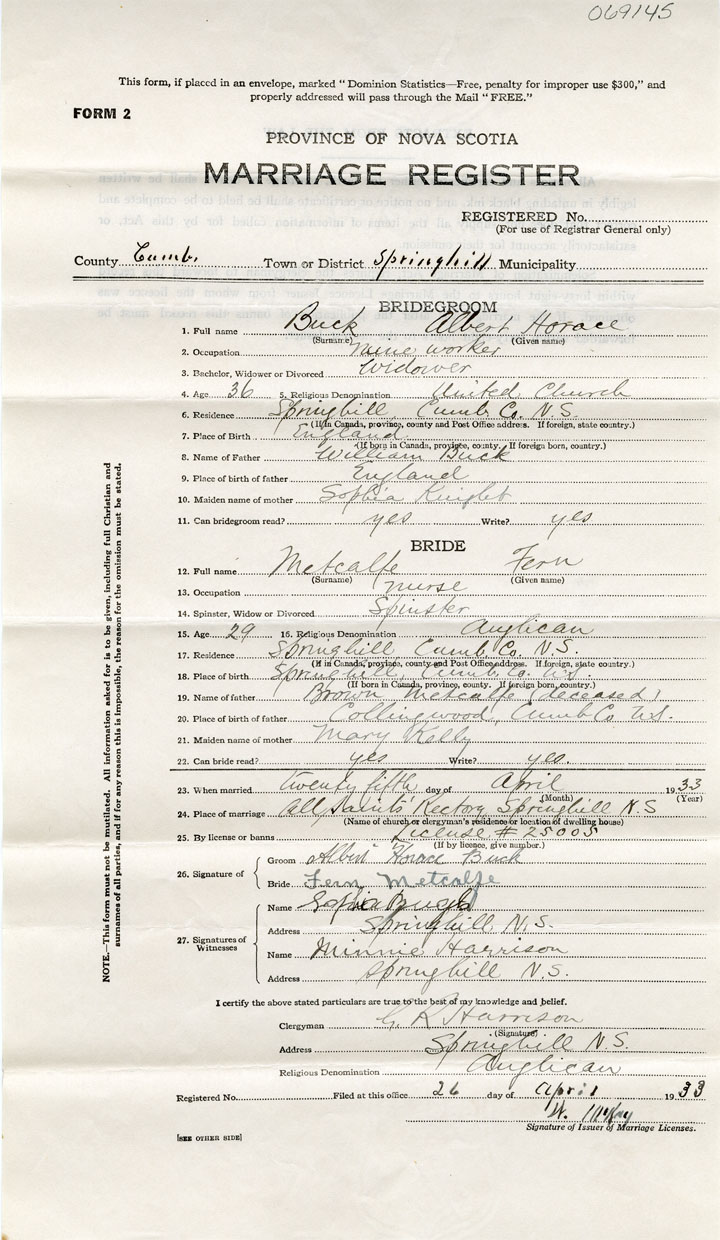 069145
This form, if placed in an envelope, marked "Dominion Statistics—Free, penalty for improper use $300," and
properly addressed will pass through the Mail "FREE."
FORM 2
PROVINCE OF NOVA SCOTIA
MARRIAGE REGISTER
REGISTERED No.
(For use of Registrar General only)
County Cumb. Town or District Springhill Municipality
BRIDEGROOM
1. Full name Buck Albert Horace
(Surname) (Given name)
2. Occupation mine worker
3. Bachelor, Widower or Divorced Widower
4. Age 36 5. Religious Denomination United Church
6. Residence Springhill Cumb Co. N.S.
(If in Canada, province, county and Post Office address. If foreign, state country.)
7. Place of Birth England
(If born in Canada, province, county. If foreign born, country.)
8. Name of Father William Buck
9. Place of birth of father England
10. Maiden name of mother Sophia Knight
11. Can bridegroom read? yes Write? yes
BRIDE
12. Full name Metcalfe Fern
(Surname) (Given name)
13. Occupation nurse
14. Spinster, Widow or Divorced Spinster
15. Age 29 16. Religious Denomination Anglican
17. Residence Springhill Cumb Co. N.S.
(If in Canada, province, county and Post Office address. If foreign, state country.)
18. Place of birth Springhill, Cumb Co. N.S.
(If born in Canada, province, county. If foreign born, country.)
19. Name of father Brown Metcalfe (deceased)
20. Place of birth of father Collingwood, Cumb Co. N.S.
21. Maiden name of mother Mary Kelly
22. Can bride read? yes Write? yes.
23. When married twenty fifth day of April 1933
(Month) (Year)
24. Place of marriage All Saints' Rectory Springhill N.S
(Name of church or clergyman's residence or location of dwelling house)
25. By license or banns License # 25005
(If by licence, give number.)
26. Signature of
Groom Albert Horace Buck
Bride Fern Metcalfe
27. Signatures of Witnesses
Name Sophia
Address Springhill, N.S.
Name Minnie Harrison
Address Springhill N.S.
I certify the above stated particulars are true to the best of my knowledge and belief.
Clergyman G. R. Harrison
(Signature)
Address Springhill N.S.
Religious Denomination Anglican
Registered No. Filed at this office 26 day of April 1933
W.
Signature of Issuer of Marriage Licenses.
[SEE OTHER SIDE]
NOTE.—This form must not be mutilated. All information asked for is to be given, including full Christian and
surnames of all parties, and if for any reason this is impossible, the reason for the omission must be stated.